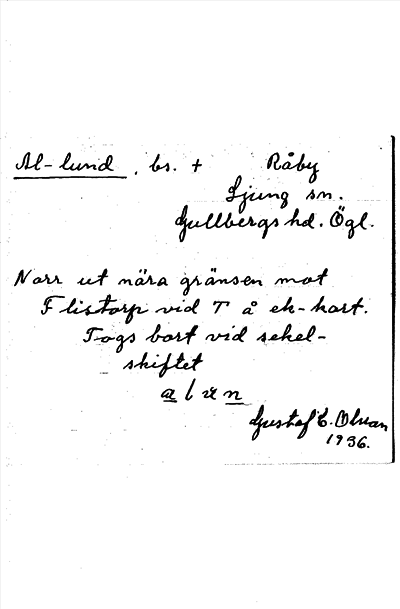 Al-lund, bs. + Råby
Ljung sn.
Gullbergs hd. Ögl.
Norr ut nära gränsen mot
Flistorp vid T å ek-kart.
Togs bort vid sekel-
skiftet
Gustaf E. Olsson
1936.